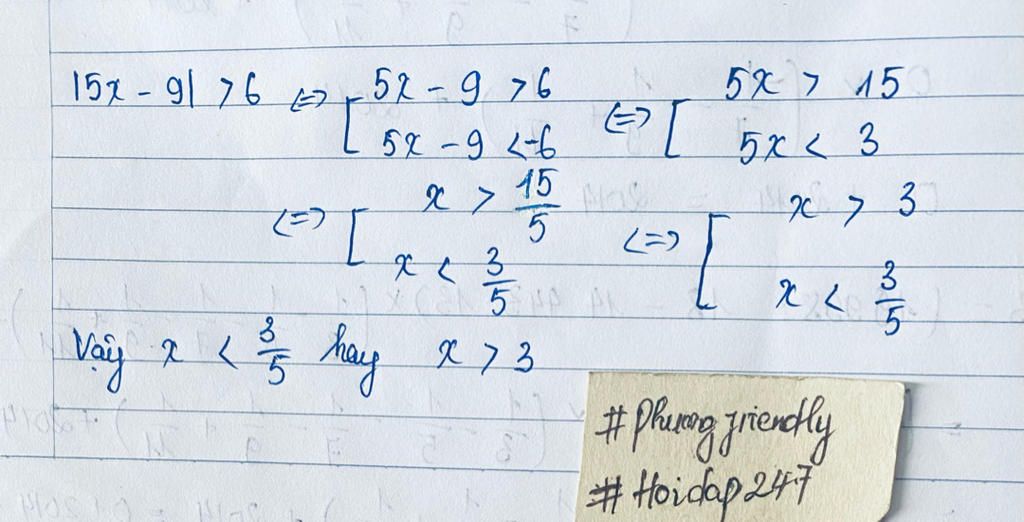 |5x - 9| > 6 <=> [ 5x - 9 > 6 <=> [ 5x > 15
5x - 9 < -6 5x < 3
<=> [ x > 15/5 <=> [ x > 3
x < 3/5 x < 3/5
Vậy x < 3/5 hay x > 3
# Phuong friendly
# Hoidap247